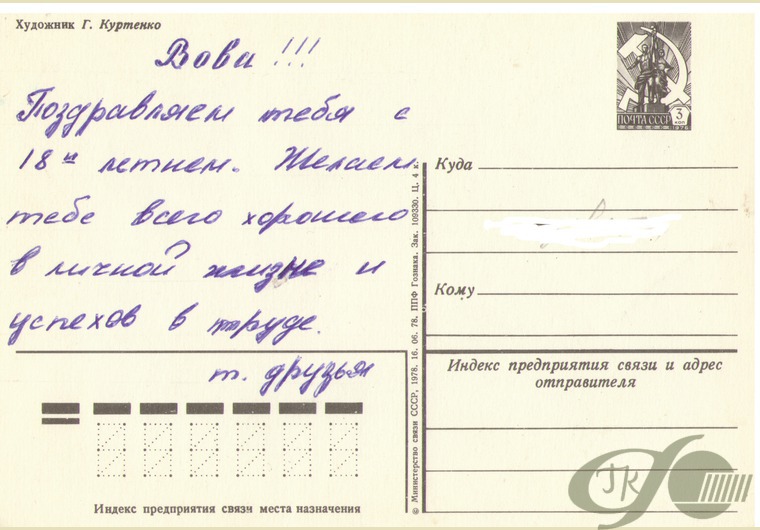 Художник Г. Куртенко
Вова !!!
Поздравляем тебя с
18и летием. Желаем
тебе всего хорошего
в личной жизне и
успехов в труде.
т. друзья
ПОЧТА СССР
3
КОП
1976
Куда
Кому
Индекс предприятия связи и адрес
отправителя
© Министерство связи СССР, 1978. 16. 06. 78. ППФ Гознака. Зак. 109330. Ц. 4 к.
Индекс предприятия связи места назначения
ГК